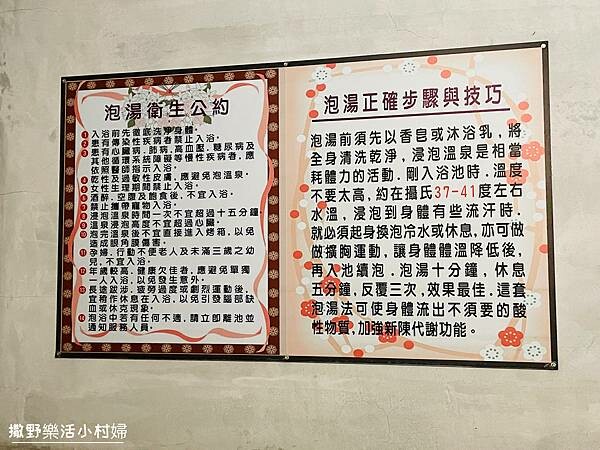 泡湯衛生公約
1 入浴前先徹底洗淨身體。
2 患有傳染性疾病者禁止入浴。
3 患有心臟病,肺病,高血壓,糖尿病及
其他循環系統障礙等慢性疾病者,應
依照醫師指示入浴。
4 乾性及過敏性皮膚,應避免泡溫泉。
5 女性生理期間禁止入浴。
6 酒醉,空腹及飽食後,不宜入浴。
7 禁止攜帶寵物入浴。
8 浸泡溫泉時間一次不宜超過十五分鐘
9 溫泉浸泡高度不宜超過心臟。
10 泡完溫泉後不宜直接進入烤箱,以免
造成眼角膜傷害。
11 孕婦,行動不便老人及未滿三歲之幼
兒,不宜入浴。
12 年歲較高,健康欠佳者,應避免單獨
一人入浴,以免發生意外。
13 長途跋涉,疲勞過度或劇烈運動後,
宜稍作休息在入浴,以免引發腦部缺
血或休克現象。
14 泡浴中若有任何不適,請立即離池並
通知服務人員。
泡湯正確步驟與技巧
泡湯前須先以香皂或沐浴乳,將
全身清洗乾淨,浸泡溫泉是相當
耗體力的活動.剛入浴池時.溫度
不要太高,約在攝氏37-41度左右
水溫,浸泡到身體有些流汗時.
就必須起身換泡冷水或休息,亦可做
做擴胸運動,讓身體體溫降低後,
再入池續泡.泡湯十分鐘,休息
五分鐘,反覆三次,效果最佳.這套
泡湯法可使身體流出不須要的酸
性物質,加強新陳代謝功能。
撒野樂活小村婦